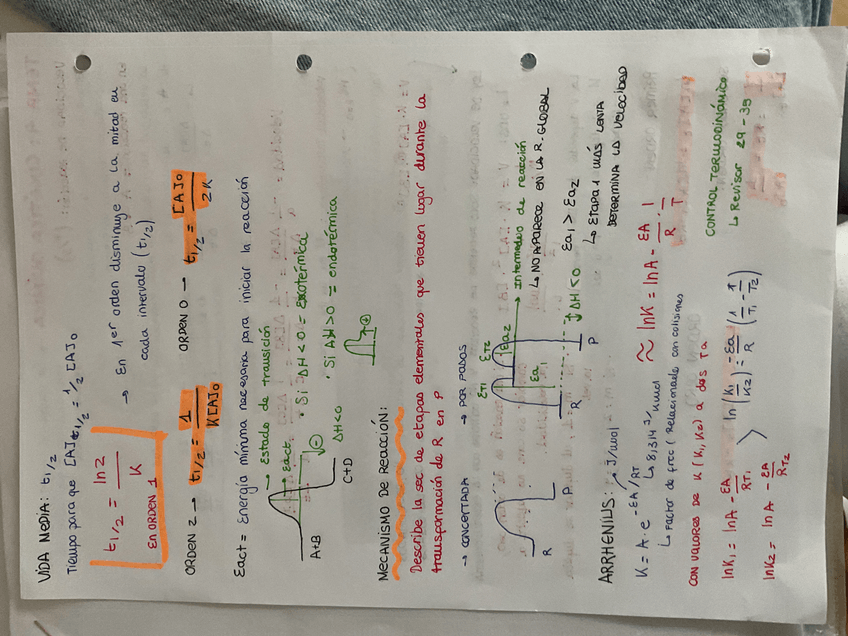 VIDA MEDIA: t1/2
Tiempo para que [A]t1/2 = 1/2 [A]0
t1/2 = ln 2 / K
EN ORDEN 1
→ En 1er orden disminuye a la mitad en
cada intervalo (t1/2)
ORDEN 2 → t1/2 = 1 / K[A]0
ORDEN 0 → t1/2 = [A]0 / 2K
Eact = Energía mínima necesaria para iniciar la reacción
→ Estado de transición
Eact
A+B
C+D
ΔH<0
⊖
· Si ΔH < 0 = exotérmica
· Si ΔH > 0 = endotérmica
⊕
MECANISMO DE REACCIÓN:
Describe la sec de etapas elementales que tienen lugar durante la
transformación de R en P
→ CONCERTADA
→ POR PASOS
R
P
ET1
ET2
Ea1
Ea2
R
P
ΔH<0
→ Intermedio de reacción
↳ NO APARECE EN LA R. GLOBAL
Ea1 > Ea2
↳ ETAPA 1 MÁS LENTA
DETERMINA LA VELOCIDAD
ARRHENIUS:
J/mol
K = A · e^-EA/RT
↳ 8,314 J/Kmol
↳ Factor de frec (Relacionado con colisiones
≈ lnK = lnA - EA/R · 1/T
CON VALORES DE K (K1, K2) a dos Ta
lnK1 = lnA - EA/RT1
lnK2 = lnA - EA/RT2
ln (K1/K2) = - Ea/R (1/T1 - 1/T2)
CONTROL TERMODINÁMICO
↳ Revisar 29 - 39